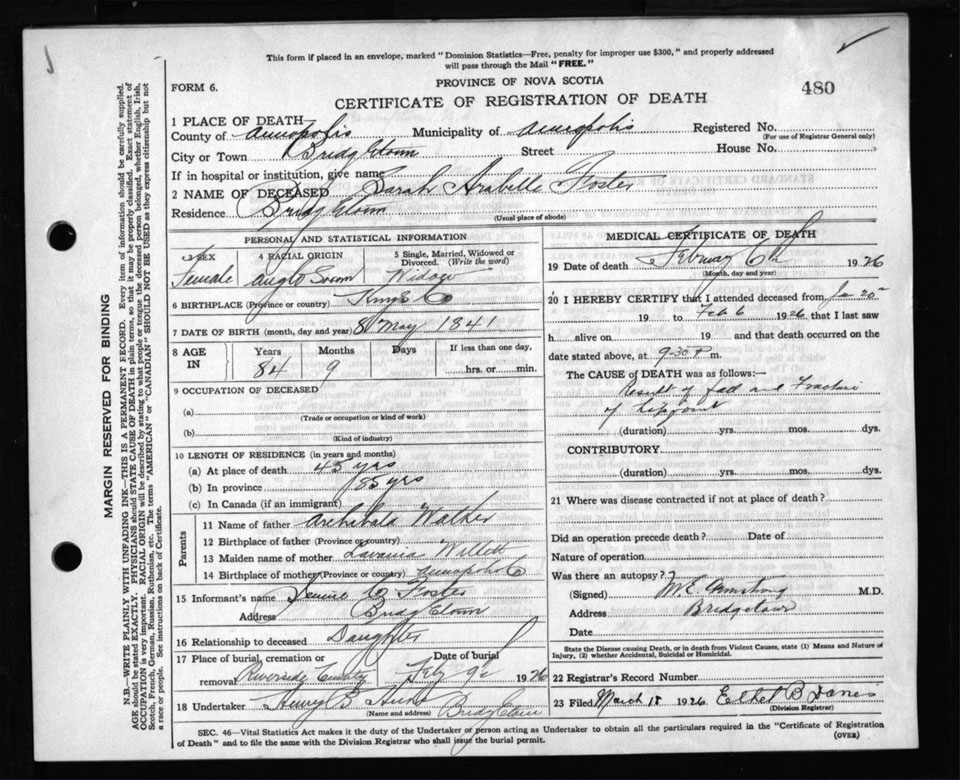 This form if placed in an envelope, marked "Dominion Statistics—Free, penalty for improper use $300," and properly addressed
will pass through the Mail "FREE."
FORM 6.
PROVINCE OF NOVA SCOTIA
480
CERTIFICATE OF REGISTRATION OF DEATH
MARGIN RESERVED FOR BINDING
N.B.—WRITE PLAINLY WITH UNFADING INK—THIS IS A PERMANENT RECORD. Every item of information should be carefully supplied.
AGE should be stated EXACTLY. PHYSICIANS should STATE CAUSE OF DEATH in plain terms, so that it may be properly classified. Exact statement of
OCCUPATION is very important. RACIAL ORIGIN will be described by stating to what people or tongue the deceased person belonged, whether English, Irish,
Scotch, French, German, Russian, Ruthenian, etc. The terms "AMERICAN" or "CANADIAN" SHOULD NOT BE USED as they express citizenship but not
a race or people. See instructions on back of Certificate.
1 PLACE OF DEATH
County of Annapolis Municipality of Annapolis Registered No.
(For use of Registrar General only)
City or Town Bridgetown Street House No.
If in hospital or institution, give name
2 NAME OF DECEASED Sarah Arabelle Foster
Residence Bridgetown
(Usual place of abode)
PERSONAL AND STATISTICAL INFORMATION
3 SEX 4 RACIAL ORIGIN 5 Single, Married, Widowed or
Divorced. (Write the word)
Female Anglo Saxon Widow
6 BIRTHPLACE (Province or country) Kings Co
7 DATE OF BIRTH (month, day and year) 8 May 1841
8 AGE IN Years Months Days If less than one day,
84 9 hrs. or min.
9 OCCUPATION OF DECEASED
(a)
(Trade or occupation or kind of work)
(b)
(Kind of industry)
10 LENGTH OF RESIDENCE (in years and months)
(a) At place of death 45 yrs
(b) In province 85 yrs
(c) In Canada (if an immigrant)
Parents
11 Name of father Archibald Walker
12 Birthplace of father (Province or country)
13 Maiden name of mother Lavania Willett
14 Birthplace of mother (Province or country) Annapolis Co
15 Informant's name Jennie C Foster
Address Bridgetown
16 Relationship to deceased Daughter
17 Place of burial, cremation or Date of burial
removal Riverside Cemetery Feby 9 1926
18 Undertaker Henry B
(Name and address) Bridgetown
MEDICAL CERTIFICATE OF DEATH
19 Date of death February 6th 1926
(Month, day and year)
20 I HEREBY CERTIFY that I attended deceased from Jan 25
19 to Feb 6 1926 that I last saw
h alive on 19 and that death occurred on the
date stated above, at 9-30 P m.
The CAUSE of DEATH was as follows:—
Result of fall and Fracture
of hip joint
(duration) yrs. mos. dys.
CONTRIBUTORY
(duration) yrs. mos. dys.
21 Where was disease contracted if not at place of death?
Did an operation precede death? Date of
Nature of operation
Was there an autopsy?
(Signed) M E Armstrong M.D.
Address Bridgetown
Date
State the Disease causing Death, or in death from Violent Causes, state (1) Means and Nature of
Injury, (2) whether Accidental, Suicidal or Homicidal.
22 Registrar's Record Number
23 Filed March 15 1926 Ethel B
(Division Registrar)
SEC. 46—Vital Statistics Act makes it the duty of the Undertaker or person acting as Undertaker to obtain all the particulars required in the "Certificate of Registration
of Death" and to file the same with the Division Registrar who shall issue the burial permit.
(OVER)